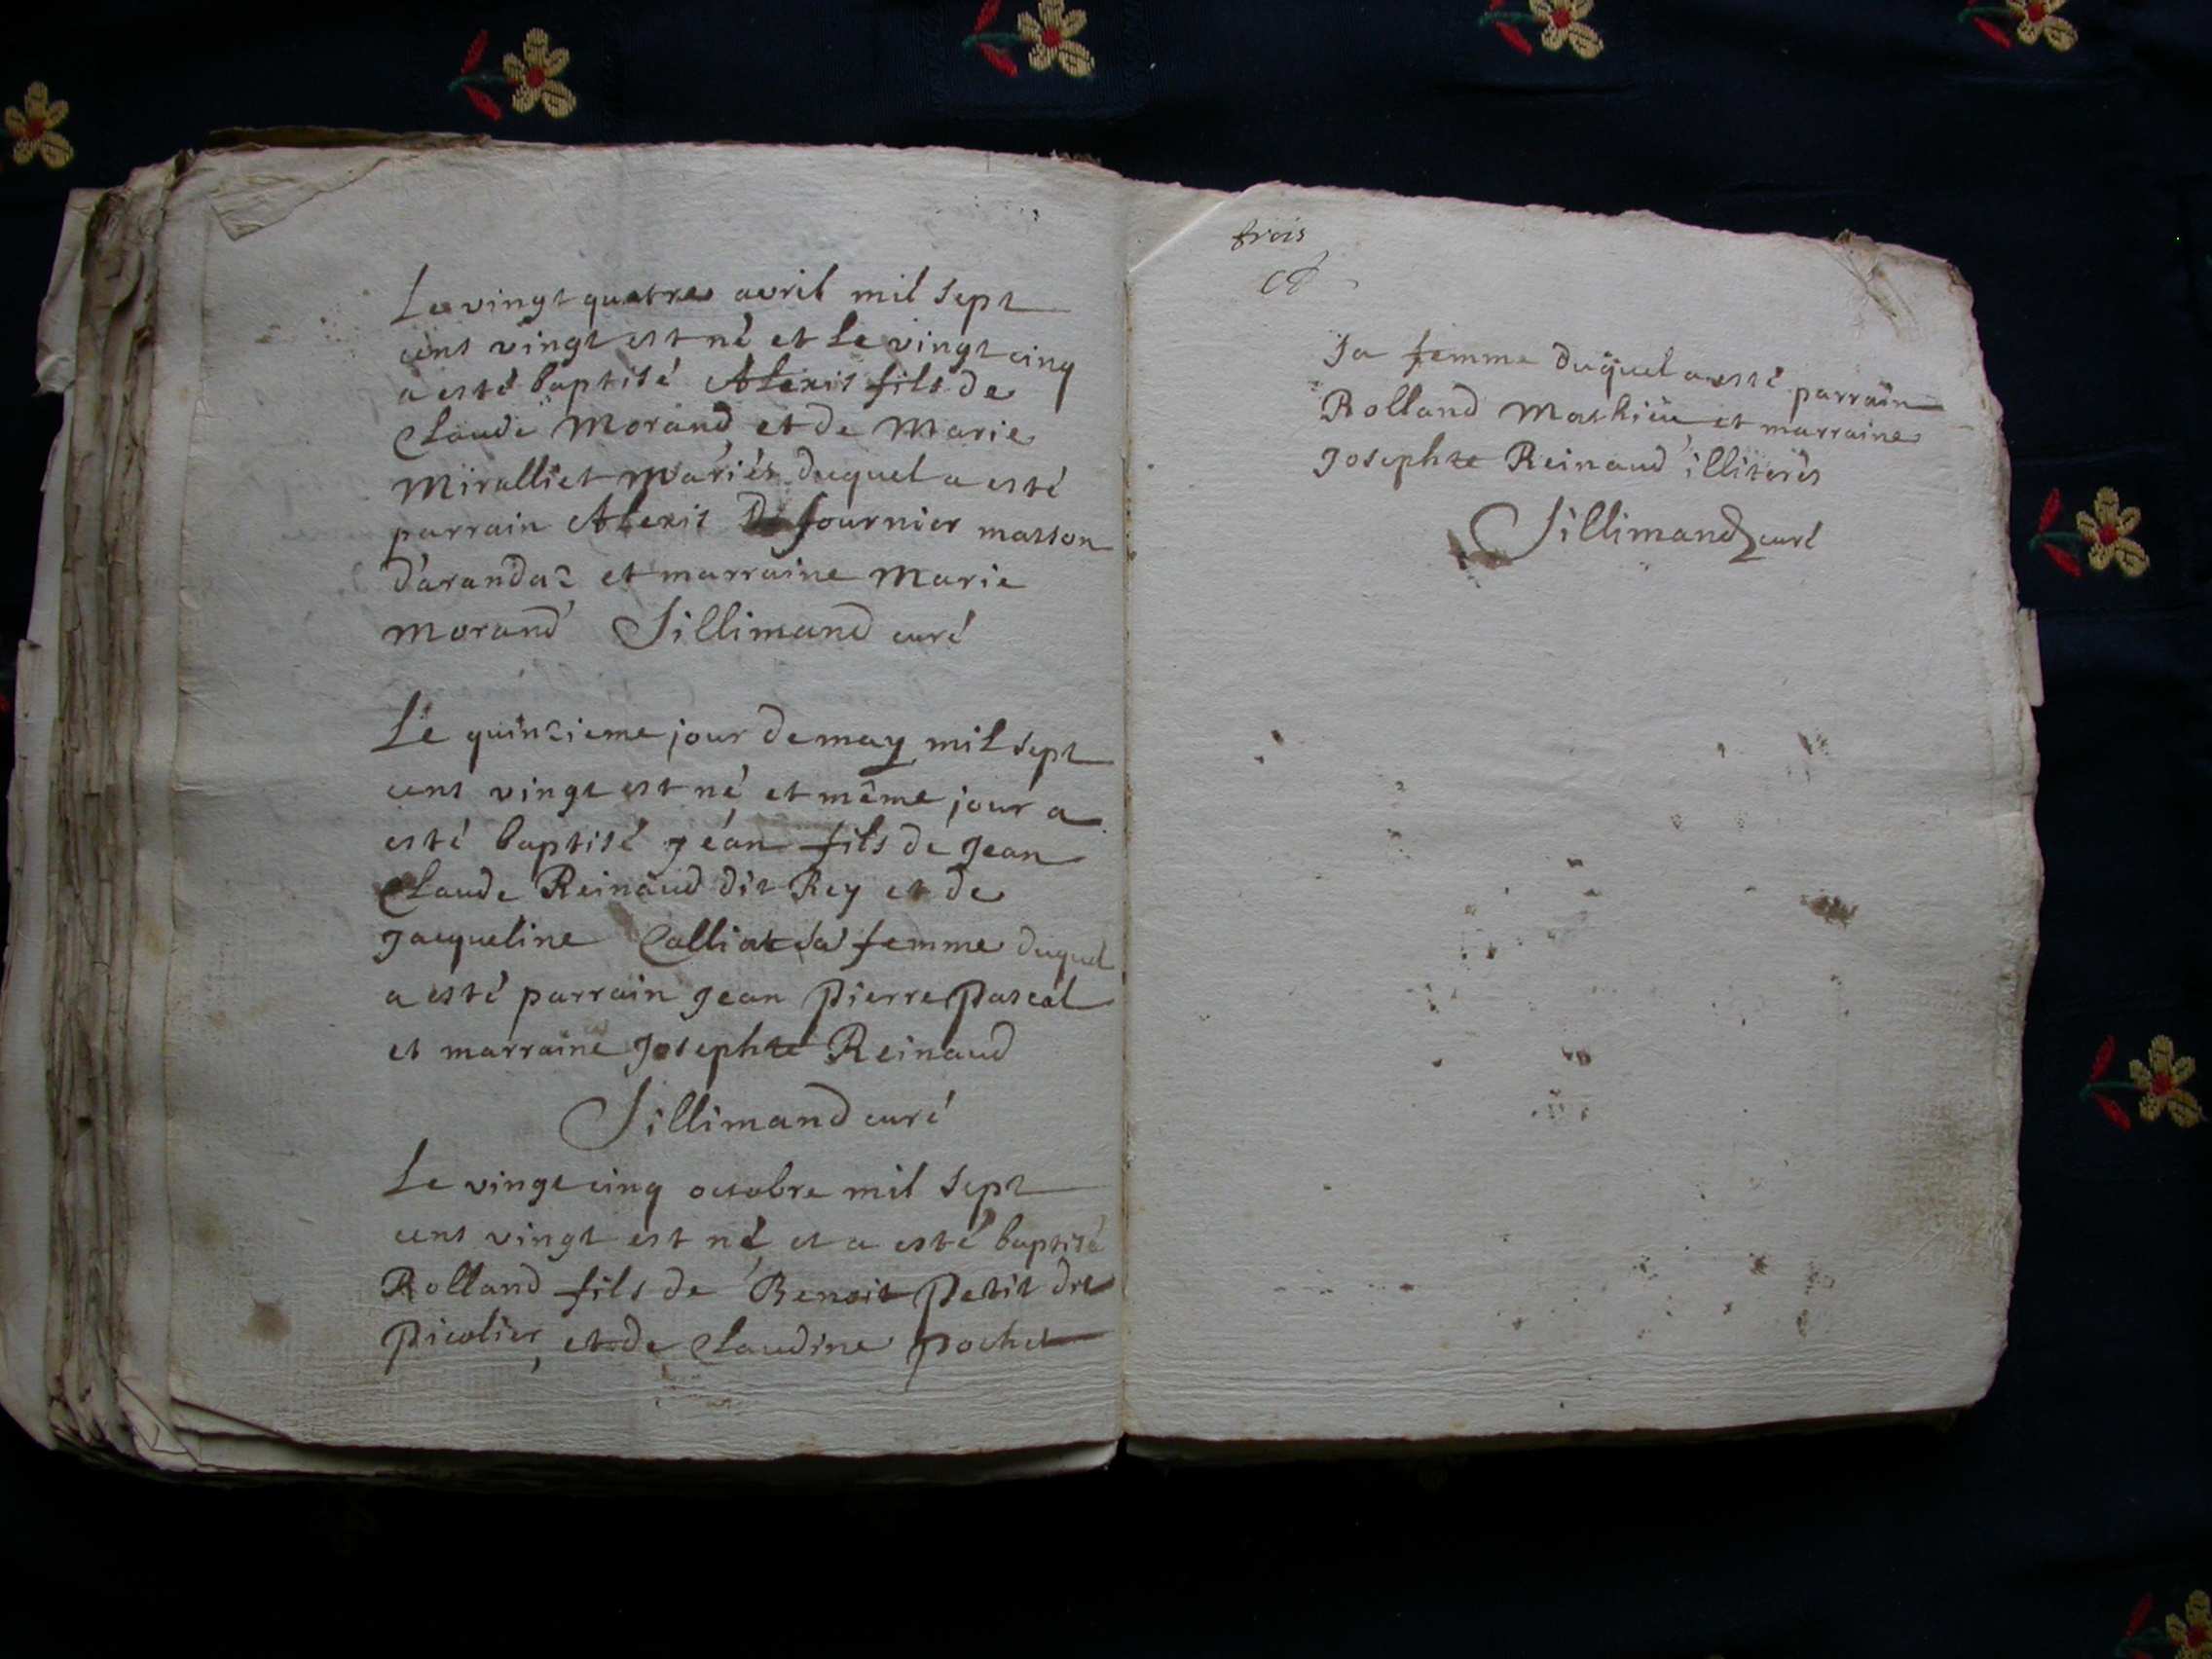 Le vingt quatre avril mil sept
cens vingt est né et le vingt cinq
a esté baptisé Alexis fils de
Claude Morand et de Marie
Miralliet mariés duquel a esté
parrain Alexis fournier masson
d'arandaz et marraine Marie
Morand Sillimand curé
Le quinzieme jour de may mil sept
cens vingt est né et même jour a
esté baptisé jéan fils de Jean
Claude Reinaud dit Rey et de
Jacqueline Calliat sa femme duquel
a esté parrain Jean Pierre Pascal
et marraine Josephte Reinaud
Sillimand curé
Le vingt cinq octobre mil sept
cens vingt est né et a esté baptisé
Rolland fils de Benoit Petit dit
Picolier, et de Claudine pochet
trois
sa femme duquel a esté parrain
Rolland Mathieu et marraine
Josephte Reinaud illiterés
Sillimand curé